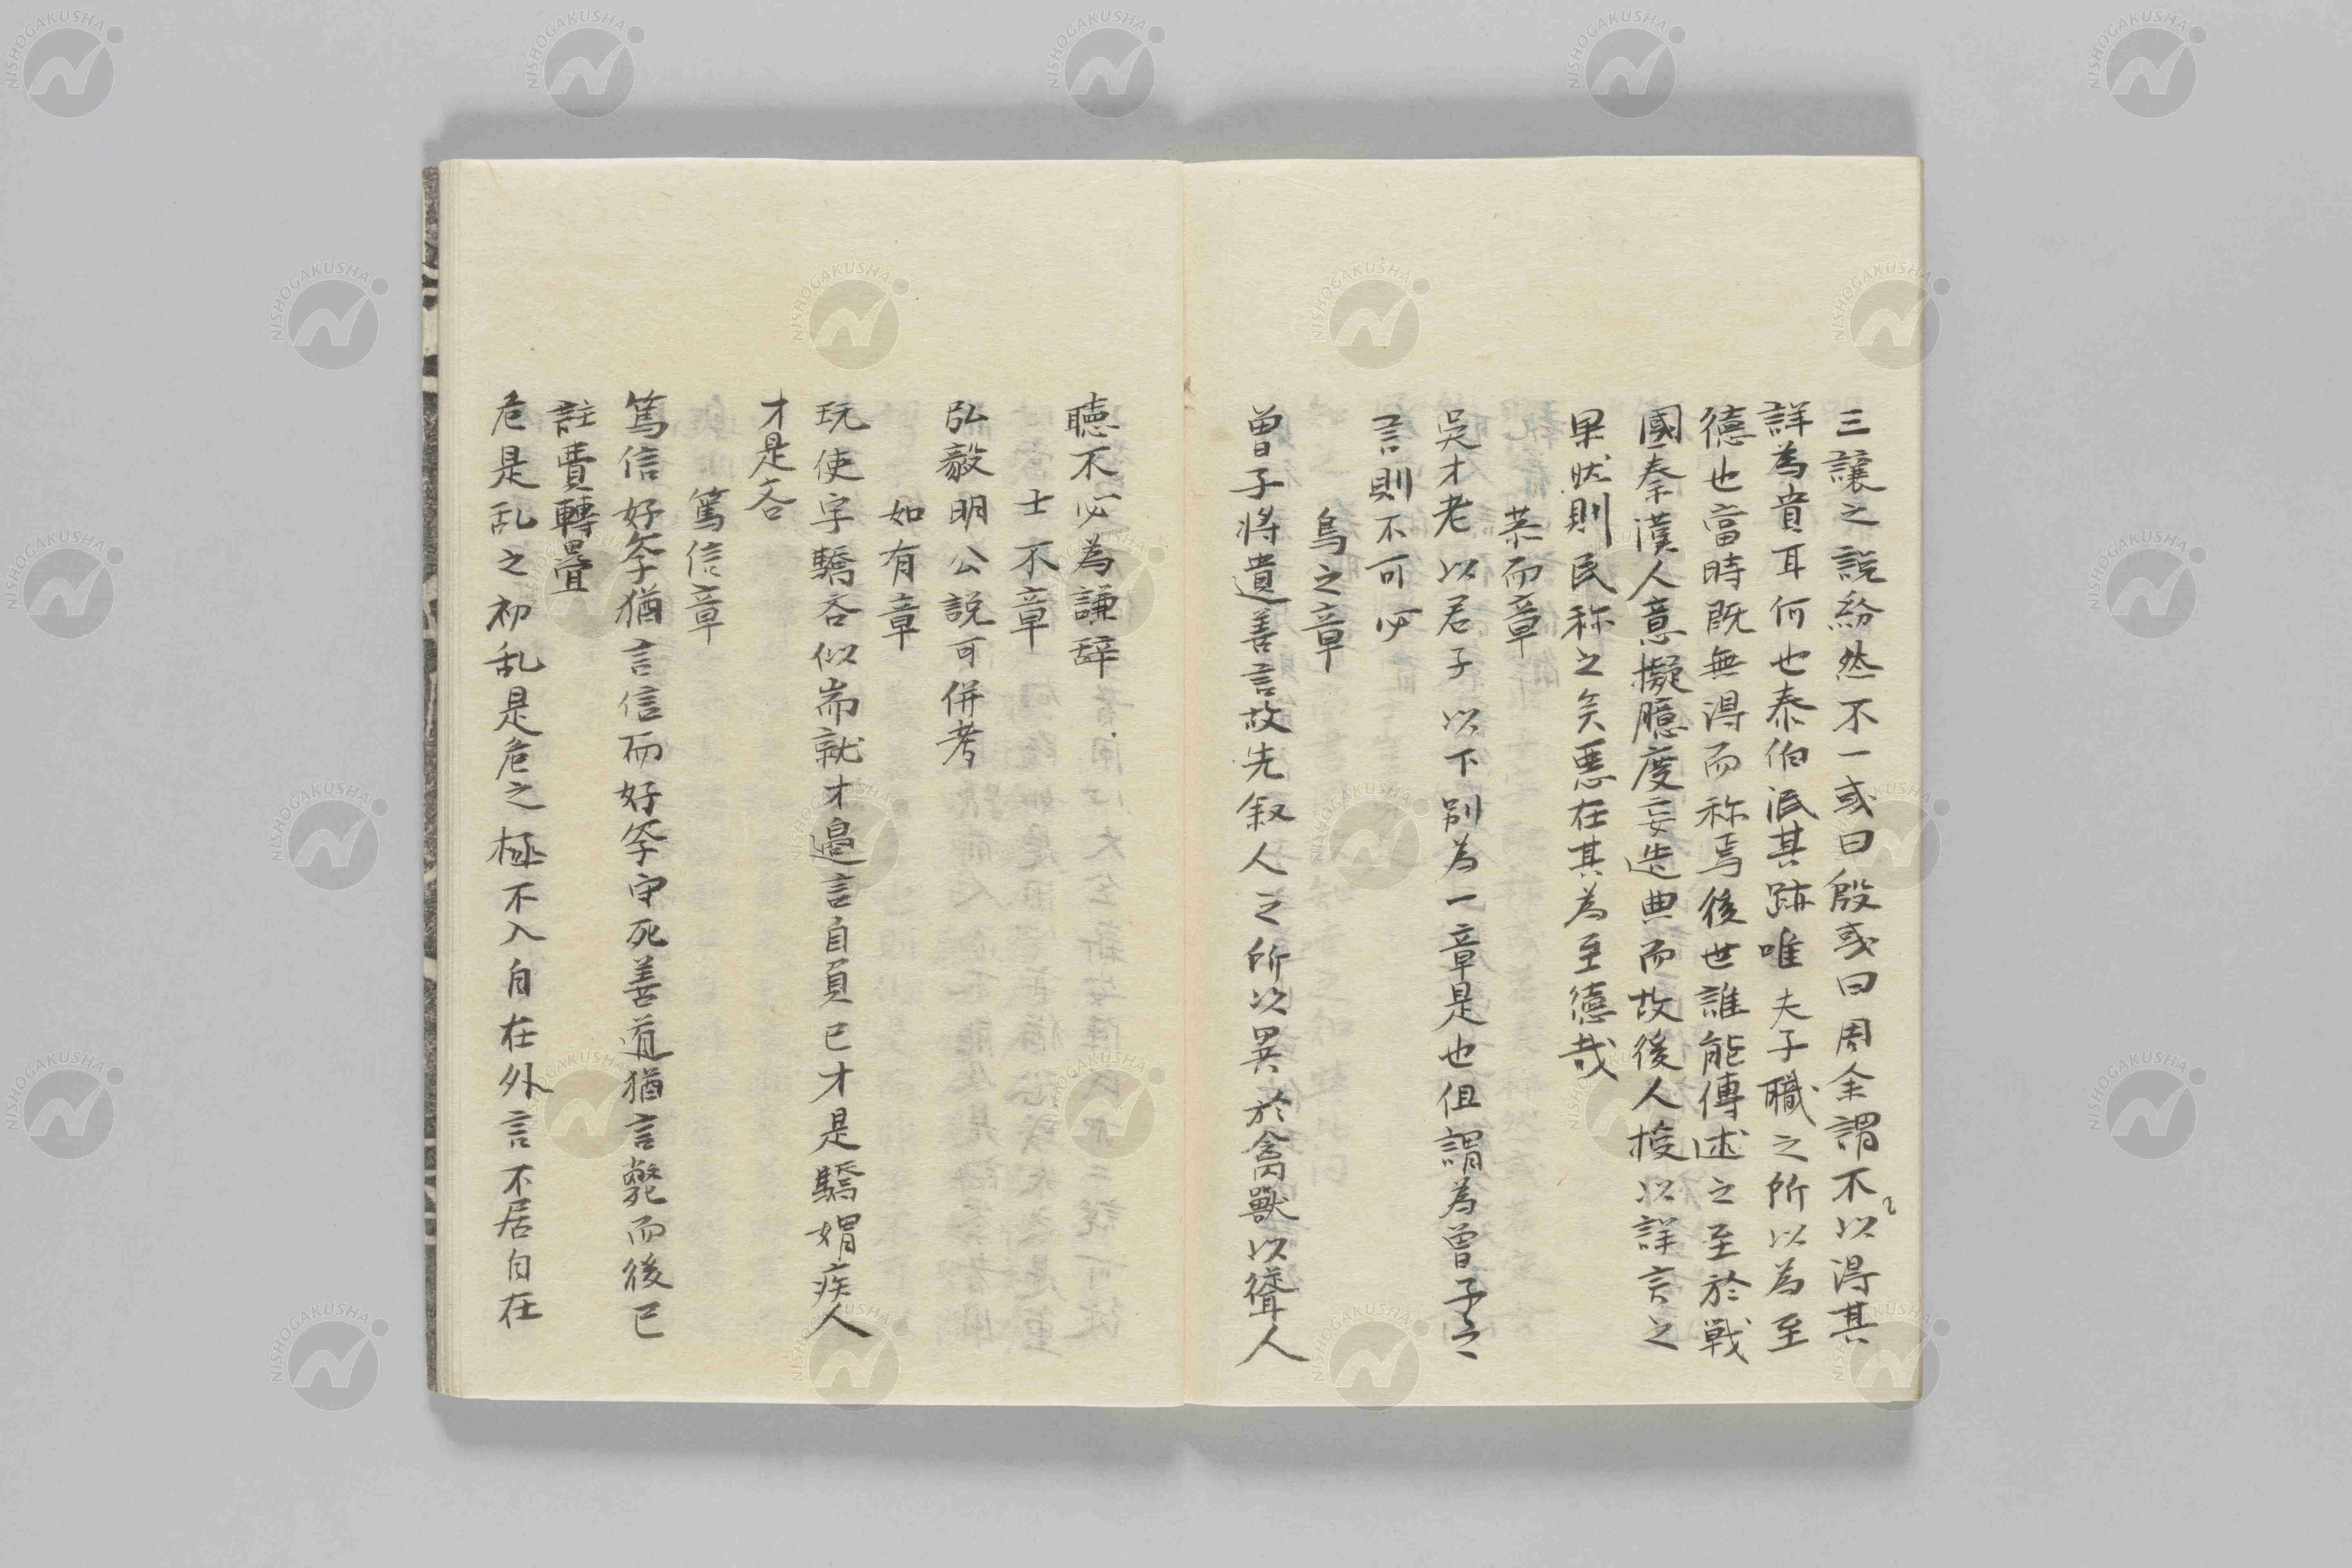 三讓之說紛然不一或曰殷或曰周余謂不以得其
詳為貴耳何也泰伯泯其跡唯夫子職之所以為至
德也當時既無得而称焉後世誰能傳述之至於戦
國秦漢人意擬臆度妄造典而故後人授以詳言之
果然則民称之矣悪在其為至德哉
恭而章
吳才老以君子以下別為一章是也但謂為曾子之
言則不可必
鳥之章
曽子将遺善言故先叙人之所以異於禽獸以聳人
聴不必為謙辞
士不章
弘毅明公説可併考
如有章
玩使字驕吝似耑就才邉言自負已才是驕媢疾人
才是吝
篤信章
篤信好斈猶言信而好斈守死善道猶言斃而後已
註費轉疊
危是乱之初乱是危之極不入自在外言不居自在
NISHOGAKUSHA